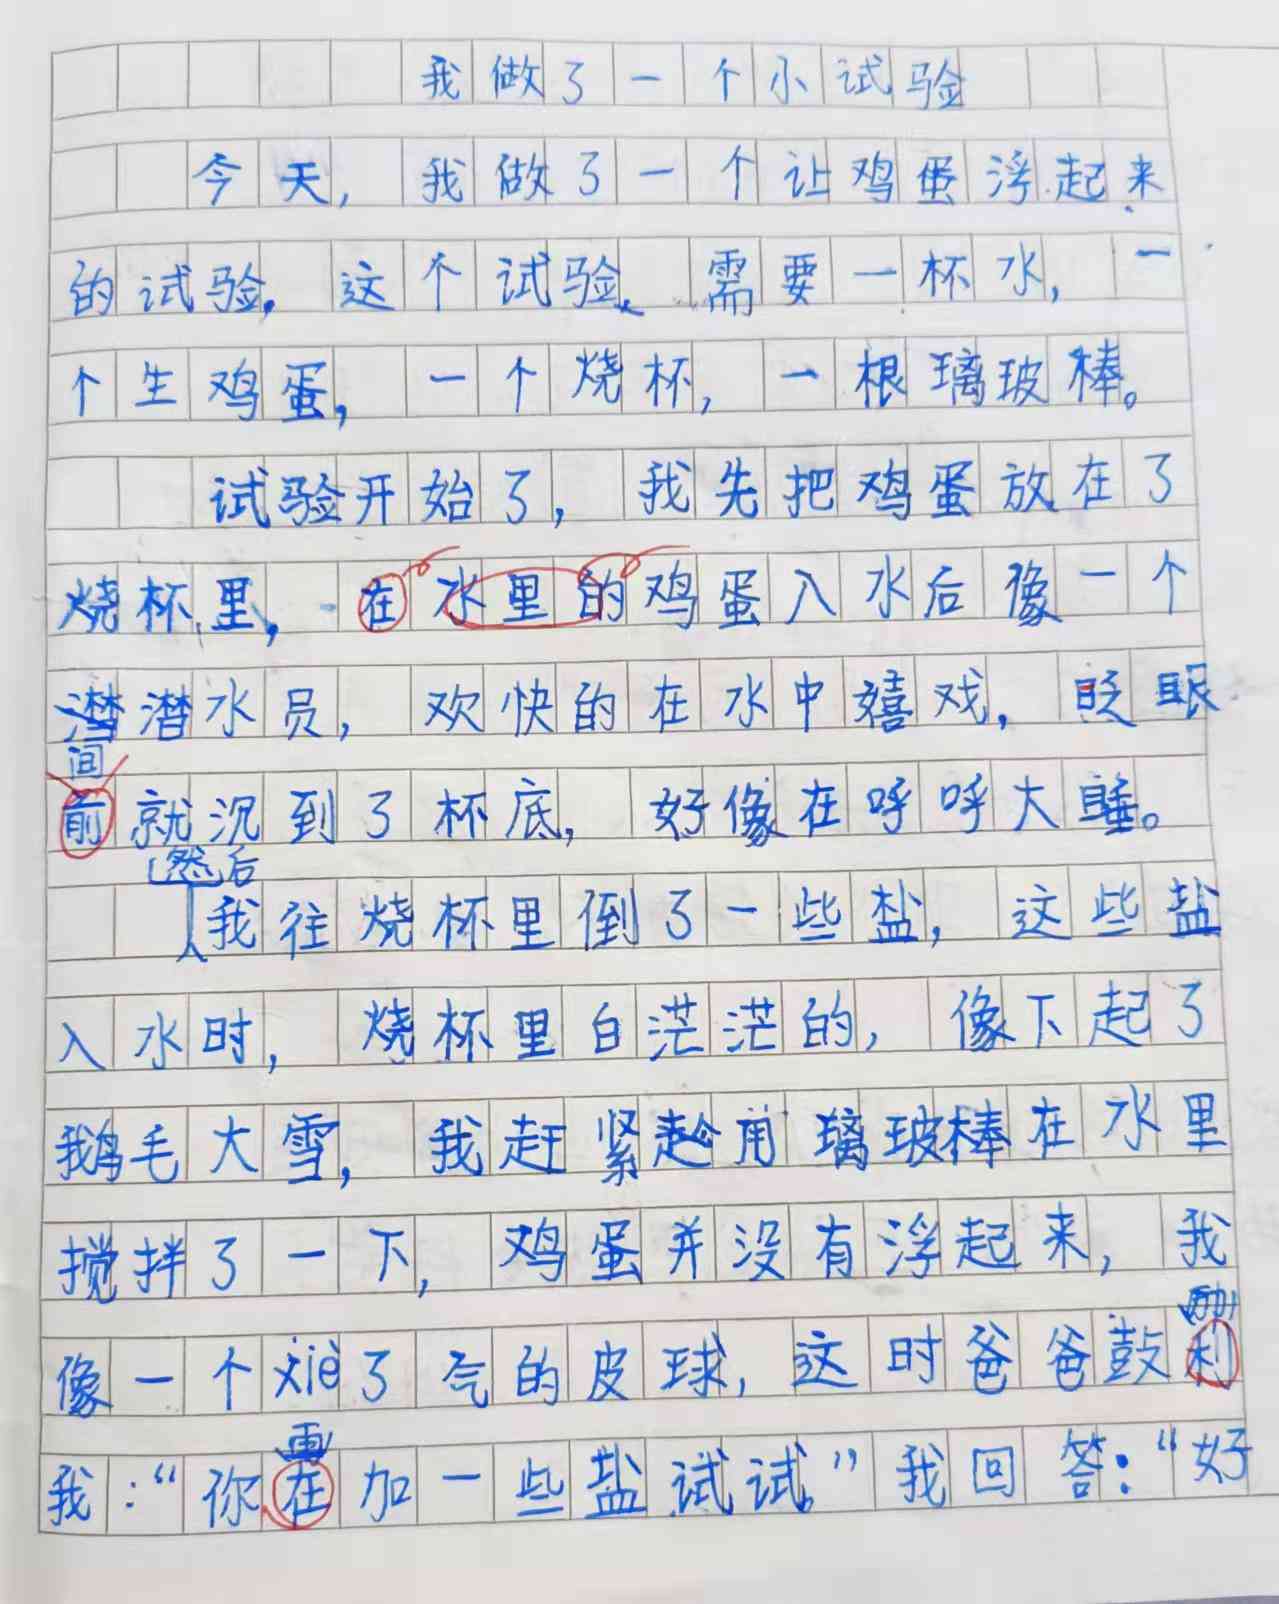 我做了一个小试验
今天，我做了一个让鸡蛋浮起来
的试验，这个试验、需要一杯水，一
个生鸡蛋，一个烧杯，一根璃玻棒。
试验开始了，我先把鸡蛋放在了
烧杯里，在水里的鸡蛋入水后像一个
潜水员，欢快的在水中嬉戏，眨眼
间
前就沉到了杯底，好像在呼呼大睡。
然后
我往烧杯里倒了一些盐，这些盐
入水时，烧杯里白茫茫的，像下起了
鹅毛大雪，我赶紧用璃玻棒在水里
搅拌了一下，鸡蛋并没有浮起来，我
励
像一个xiè了气的皮球，这时爸爸鼓利
再
我：“你在加一些盐试试。”我回答：“好